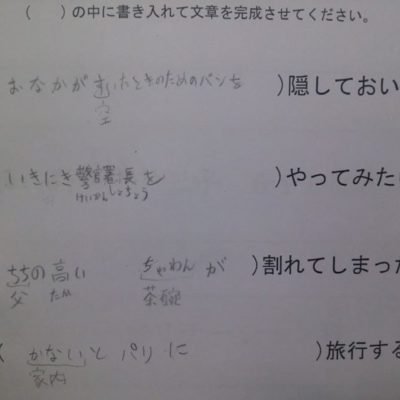 ( )の中に書き入れて文章を完成させてください。
おなかがすいたときのためのパンを )隠しておい
空
いきにき警署長を )やってみた
けいかんしょちょう
ちちの高い ちゃわんが )割れてしまった
父 たか 茶碗
( かないとパリに )旅行する
家内